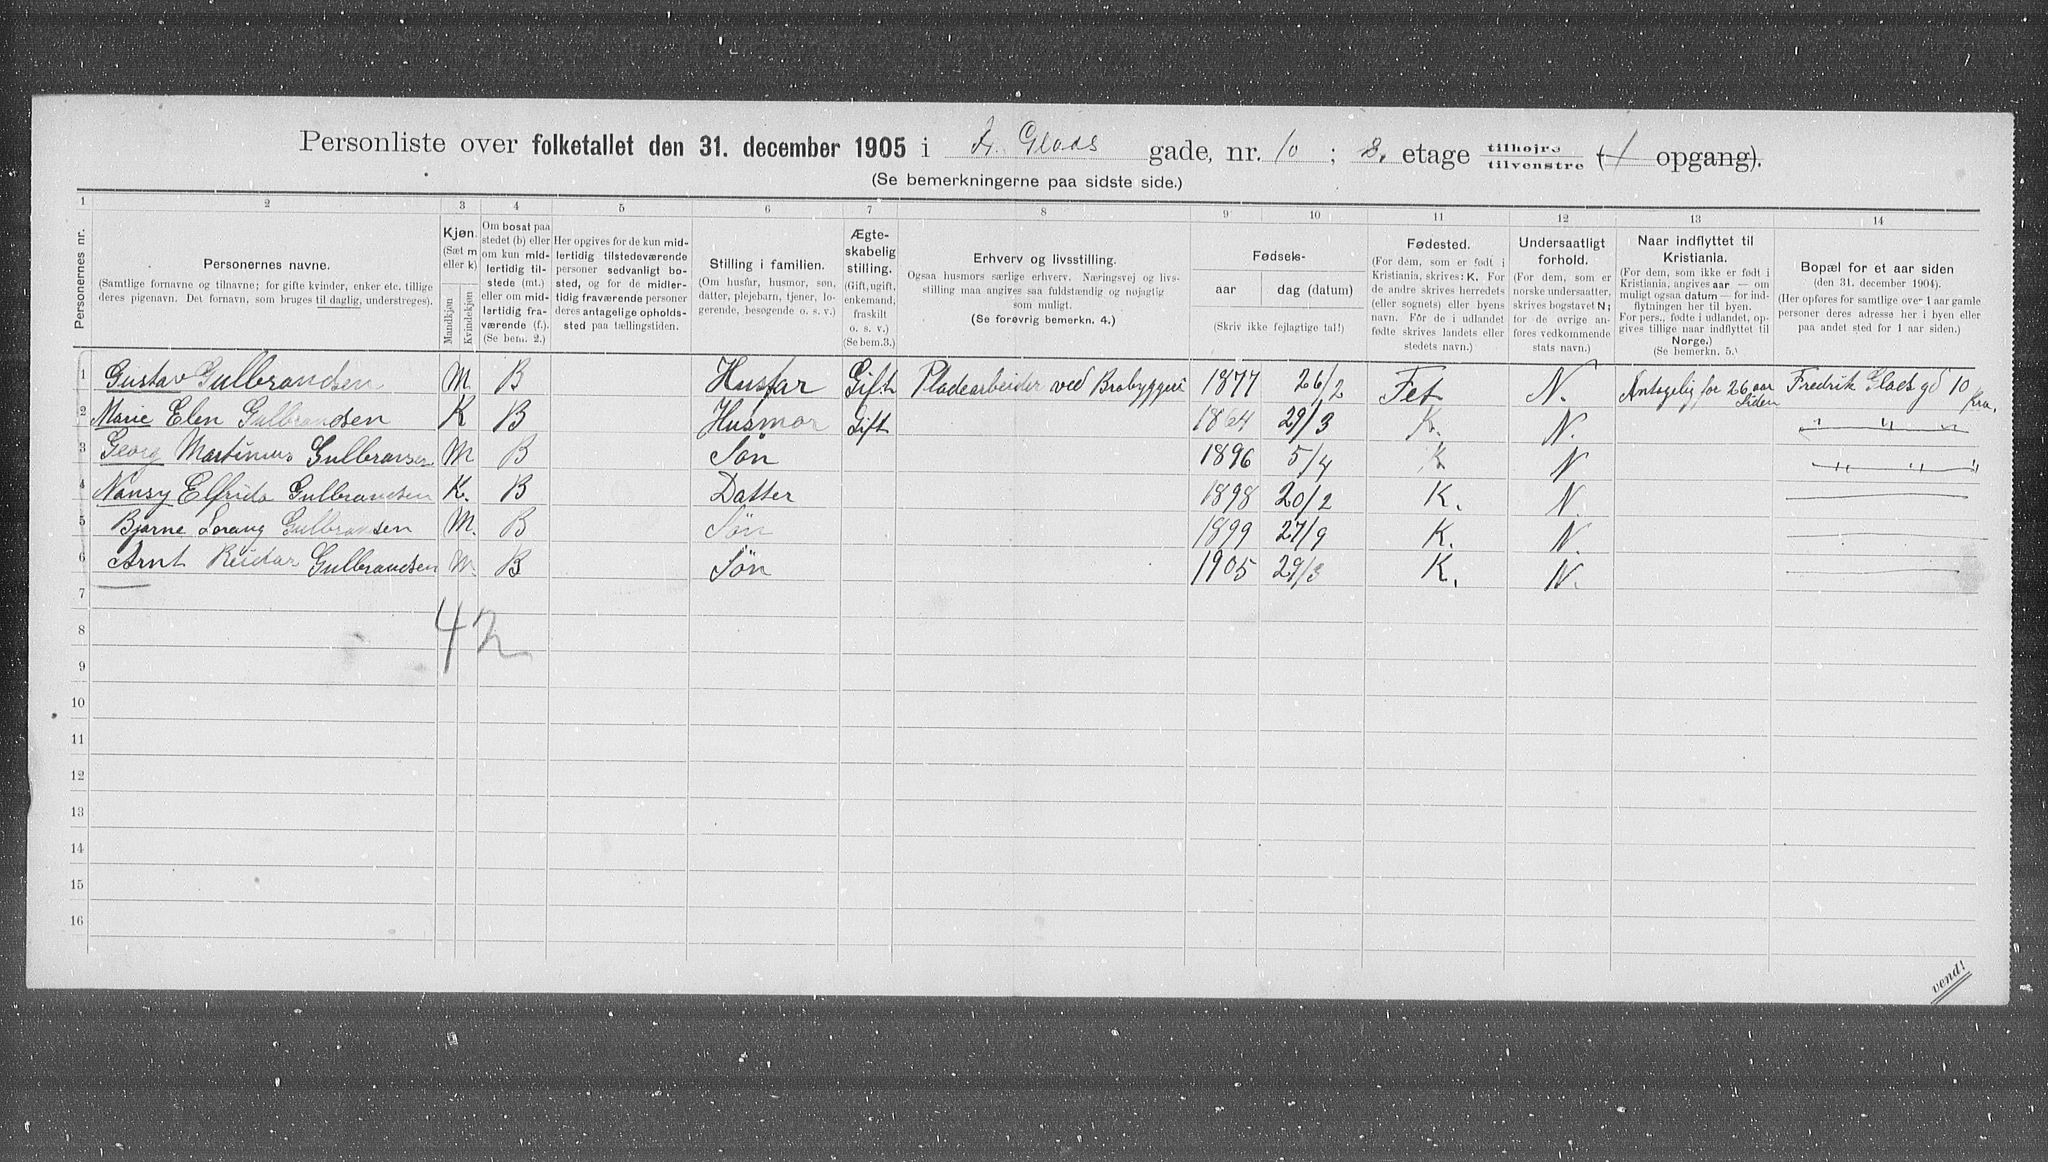 Personliste over folketallet den 31. december 1905 i Fr. Glads gade, nr. 10 ; 3. etage tilhøjre tilvenstre (1 opgang).
(Se bemerkningerne paa sidste side.)
1 2 3 4 5 6 7 8 9 10 11 12 13 14
Personernes nr.
Personernes navne.
(Samtlige fornavne og tilnavne; for gifte kvinder, enker etc. tillige
deres pigenavn. Det fornavn, som bruges til daglig, understreges).
Kjøn.
(Sæt m
eller k)
Mandkjøn
Kvindekjøn
Om bosat paa
stedet (b) eller
om kun mid-
lertidig til-
stede (mt.)
eller om mid-
lertidig fra-
værende (f.).
(Se bem. 2.)
Her opgives for de kun mid-
lertidig tilstedeværende
personer sedvanlig bo-
sted, og for de midler-
tidig fraværende personer
deres antagelige opholds-
sted paa tællingstiden.
Stilling i familien.
(Om husfar, husmor, søn,
datter, plejebarn, tjener, lo-
gerende, besøgende o. s. v.)
Ægte-
skabelig
stilling.
(Gift, ugift,
enkemand,
fraskilt
o. s. v.)
(Se bem.3.)
Erhverv og livsstilling.
Ogsaa husmors særlige erhverv. Næringsvej og livs-
stilling maa angives saa fuldstændig og nøjagtig
som muligt.
(Se forøvrig bemerkn. 4.)
Fødsels-
aar dag (datum)
(Skriv ikke fejlagtige tal!)
Fødested.
(For dem, som er født i
Kristiania, skrives: K. For
de andre skrives herredets
(eller sognets) eller byens
navn. For de i udlandet
fødte skrives landets eller
stedets navn.)
Undersaatligt
forhold.
(For dem, som er
norske undersaatter,
skrives bogstavet N;
for de øvrige an-
føres vedkommende
stats navn.)
Naar indflyttet til
Kristiania.
(For dem, som ikke er født i
Kristiania, angives aar — om
muligt ogsaa datum — for ind-
flytningen her til byen.
For pers., fødte i udlandet, op-
gives tillige naar indflyttet til
Norge.)
(Se bemerkn. 5.)
Bopæl for et aar siden
(den 31. december 1904).
(Her opføres for samtlige over 1 aar gamle
personer deres adresse her i byen eller
paa andet sted for 1 aar siden.)
1 Gustav Gulbrandsen M. B Husfar Gift Pladearbeider ved Brobyggeri 1877 26/2 Fet N. Antagelig for 26 aar siden Fredrik Glads gd 10 Kra.
2 Marie Elen Gulbrandsen K B Husmor Gift 1864 29/3 K. N. " " "
3 Georg Martinius Gulbransen M B Søn 1896 5/4 K N " " "
4 Nansy Elfrida Gulbrandsen K. B Datter 1898 20/2 K. N.
5 Bjarne Lorang Gulbransen M. B Søn 1899 27/9 K. N.
6 Arnt Reidar Gulbrandsen M. B Søn 1905 29/3 K. N.
7
42
8
9
10
11
12
13
14
15
16
vend!